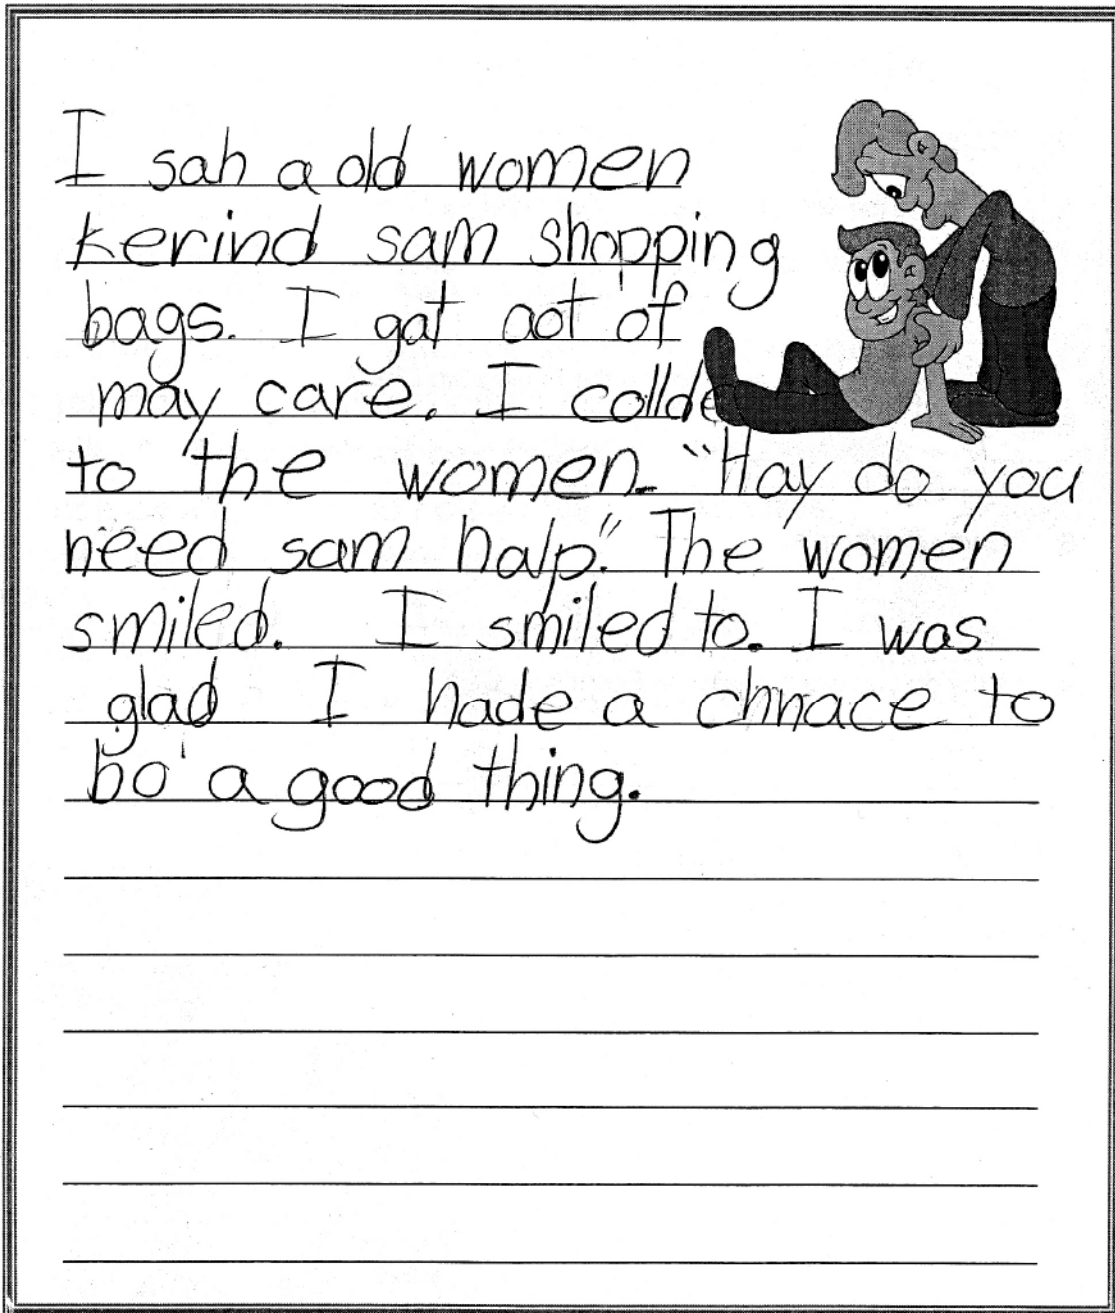 I sah a old women
kerind sam shopping
bags. I gat aot of
may care. I collde
to the women. "Hay do you
need sam halp." The women
smiled. I smiled to. I was
glad I hade a chnace to
bo a good thing.